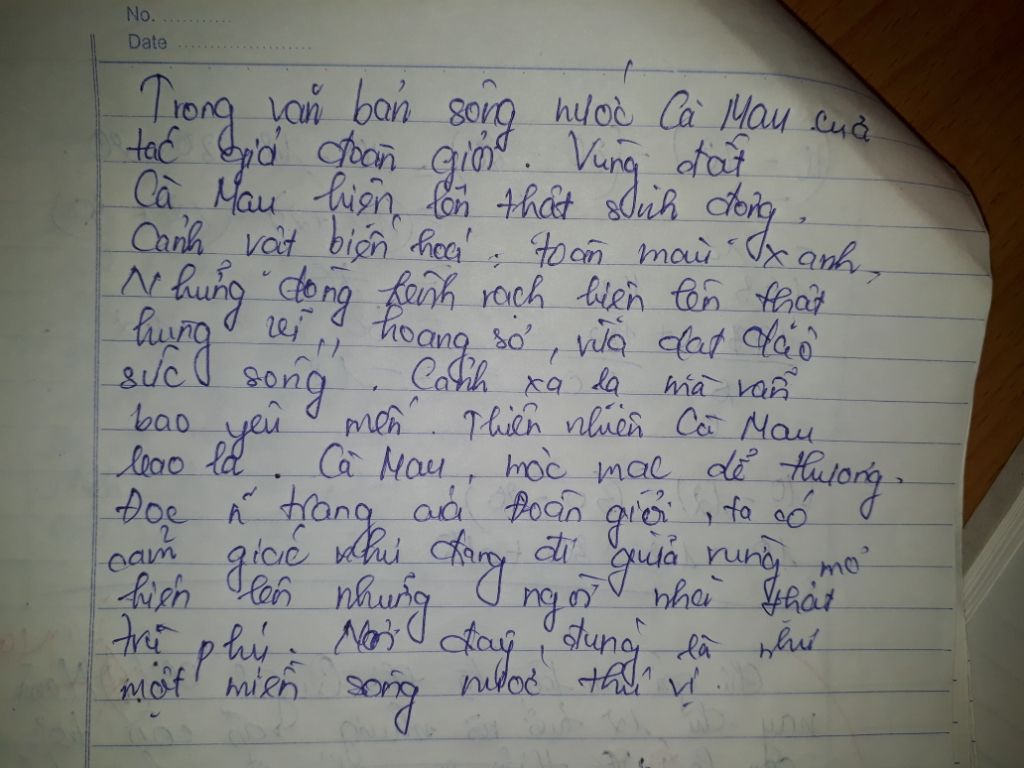 No. ...........
Date ......................
Trong văn bản sông nước Cà Mau của
tác giả đoàn giỏi. Vùng đất
Cà Mau hiện lên thật sinh động.
Cảnh vật biến hoá. toàn màu xanh,
Những dòng kênh rạch hiện lên thật
hùng vĩ,, hoang sơ, vừa dạt dáo
sức sống. Cảnh xa lạ mà vẫn
bao yêu mến. Thiên nhiên Cà Mau
bao la. Cà Mau, mộc mạc dể thương.
Đọc trang Đoàn giỏi, ta có
cảm giác như đang đi giữa rừng mơ
hiện lên những ngôi nhà thật
trù phú. Nơi đây, đúng là như
một miền sông nước thú vị.